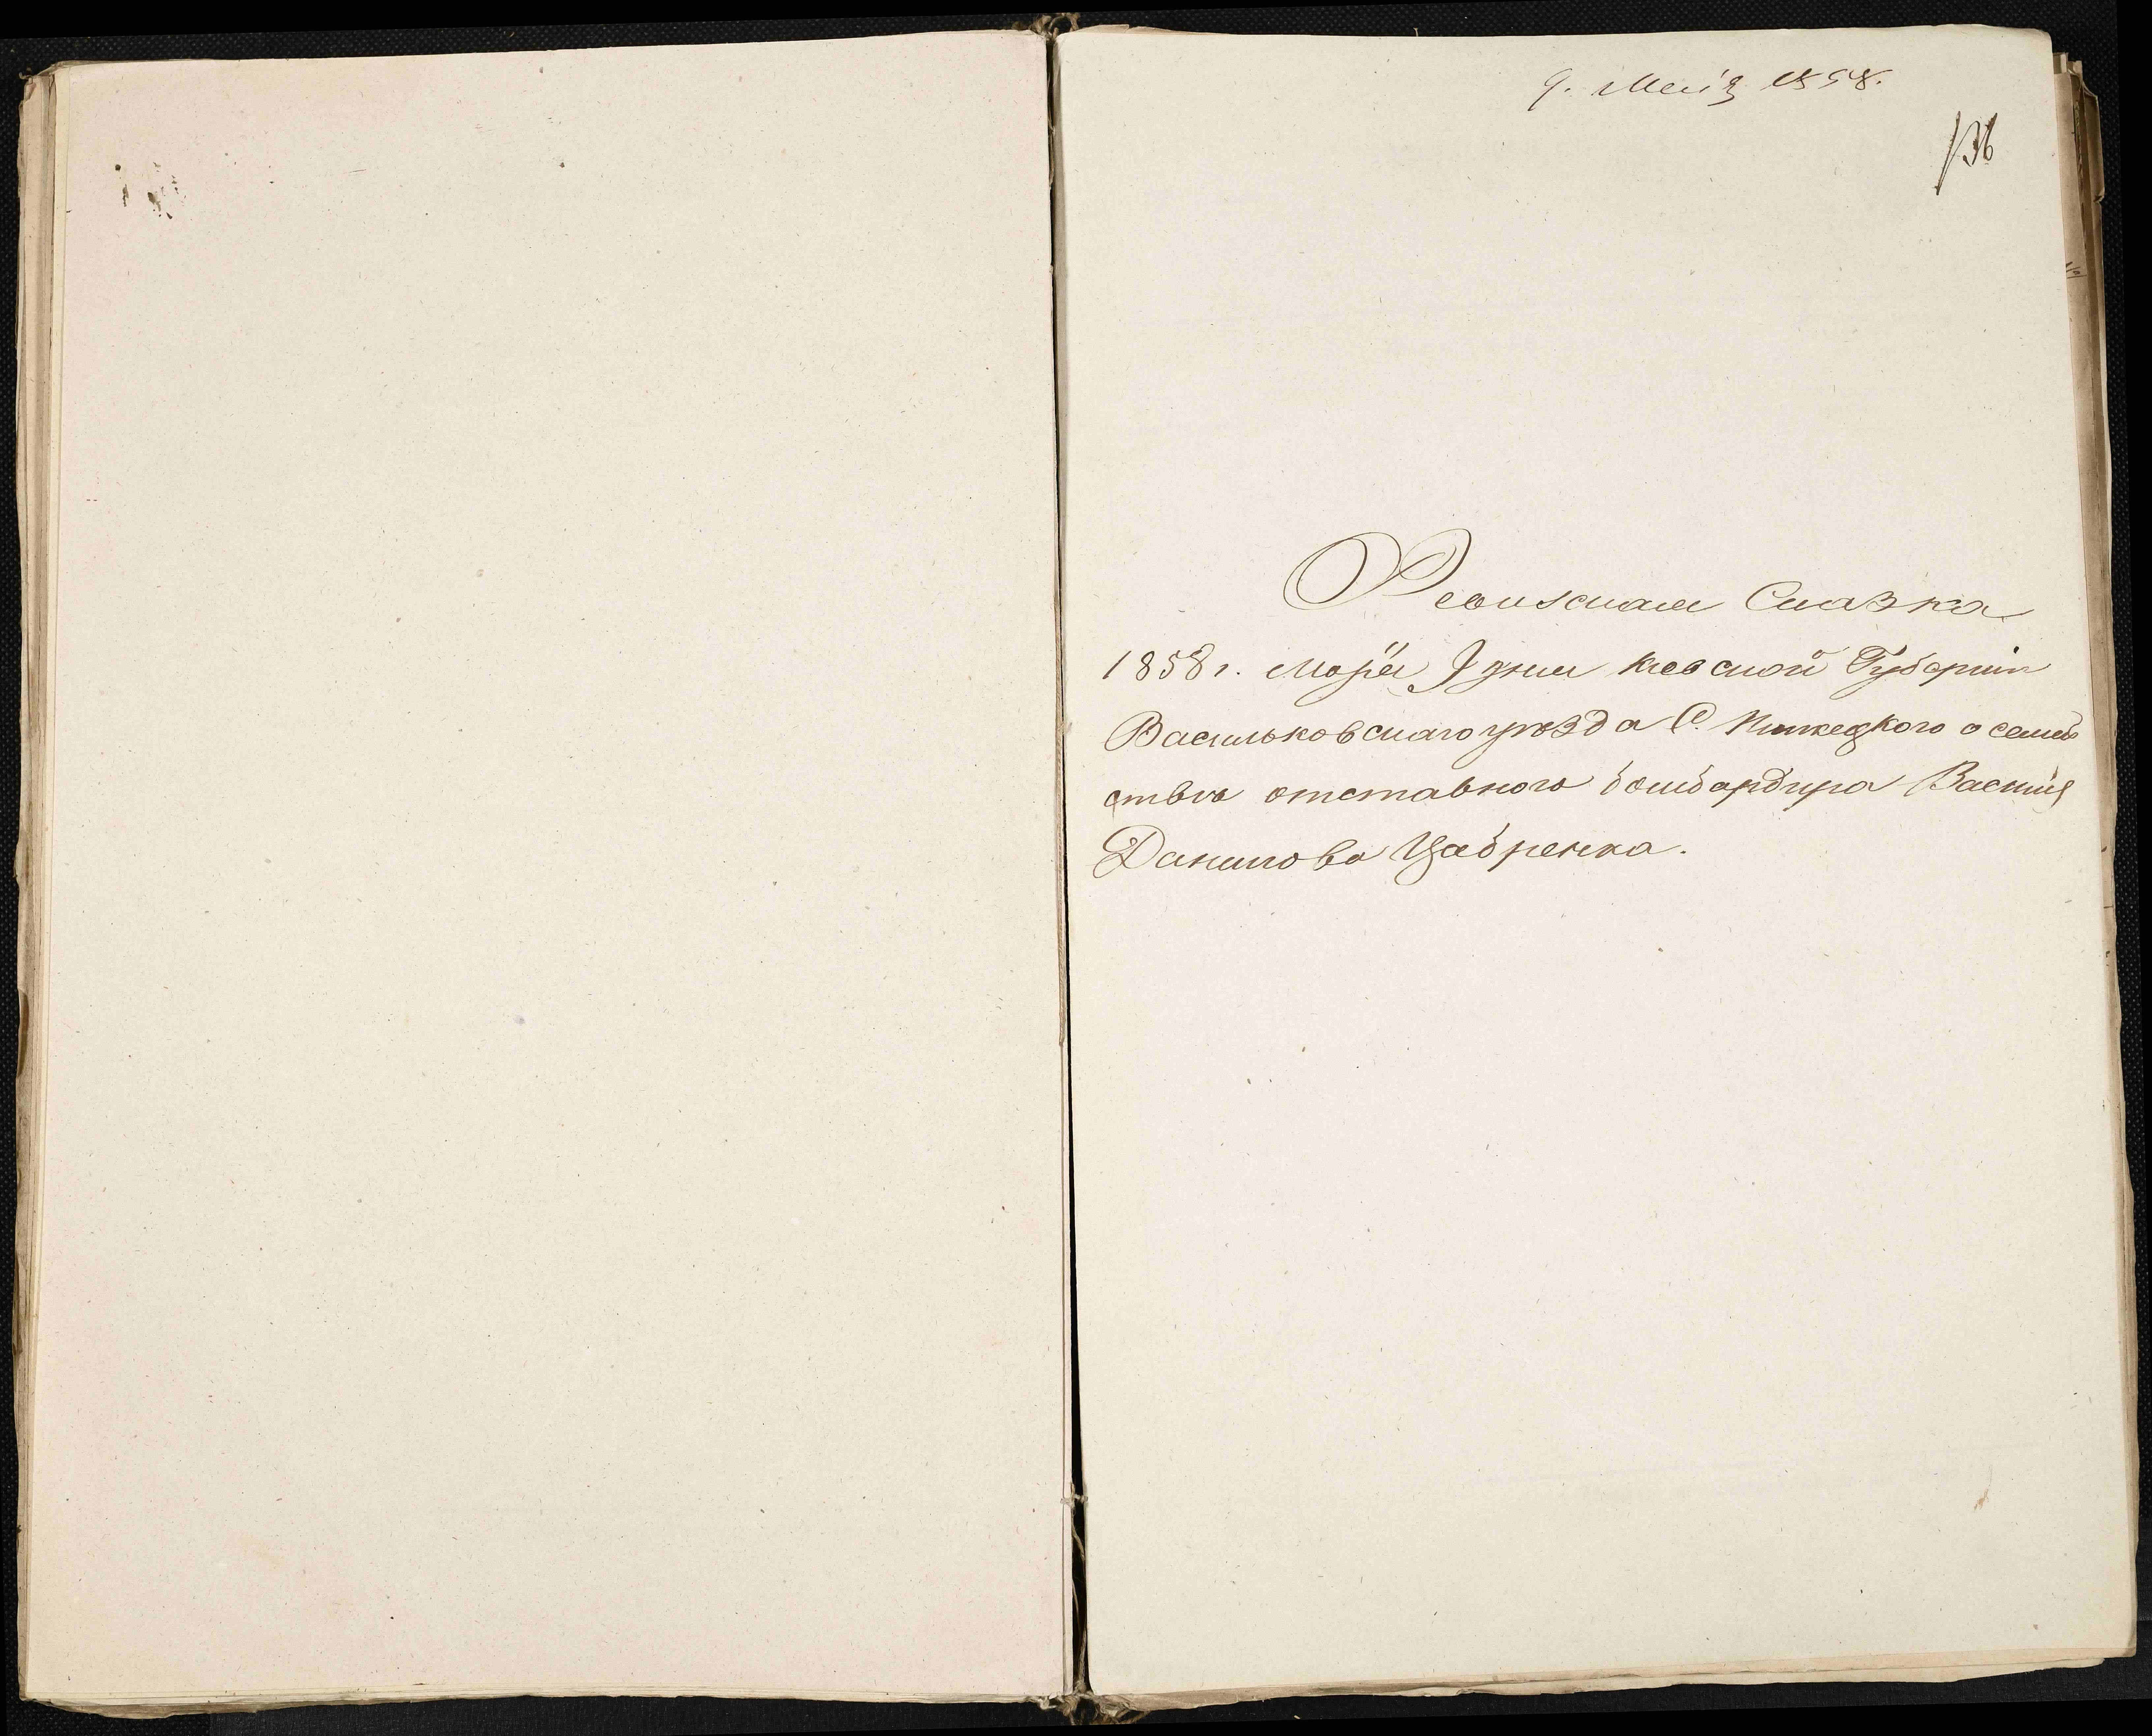 9. Маія 1858.
136
Ревизская Сказка
1858 г. Маія 9 дня Киевской Губерніи
Васильковскаго уезда С. о семей
ствѣ отставного бомбардира Василія
Данилова Цабренка.